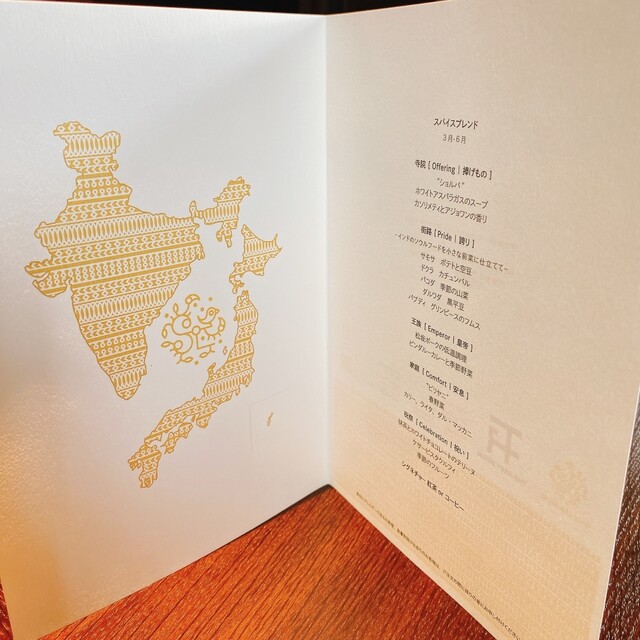 スパイスブレンド
3月-6月
寺院 [ Offering | 捧げもの ]
"ショルバ"
ホワイトアスパラガスのスープ
カソリメティとアジョワンの香り
街路 [ Pride | 誇り ]
-インドのソウルフードを小さな前菜に仕立てて-
サモサ ポテトと空豆
ドクラ カチュンバル
パコダ 季節の山菜
ダルワダ 黒平豆
パプディ グリンピースのフムス
王族 [ Emperor | 皇帝 ]
松坂ポークの低温調理
ビンダルーカレーと季節野菜
家庭 [ Comfort | 安息 ]
"ビリヤニ"
春野菜
カリー、ライタ、ダル・マッカニ
祝祭 [ Celebration | 祝い ]
抹茶とホワイトチョコレートのテリーヌ
季節のフルーツ
シグネチャー 紅茶 or コーヒー